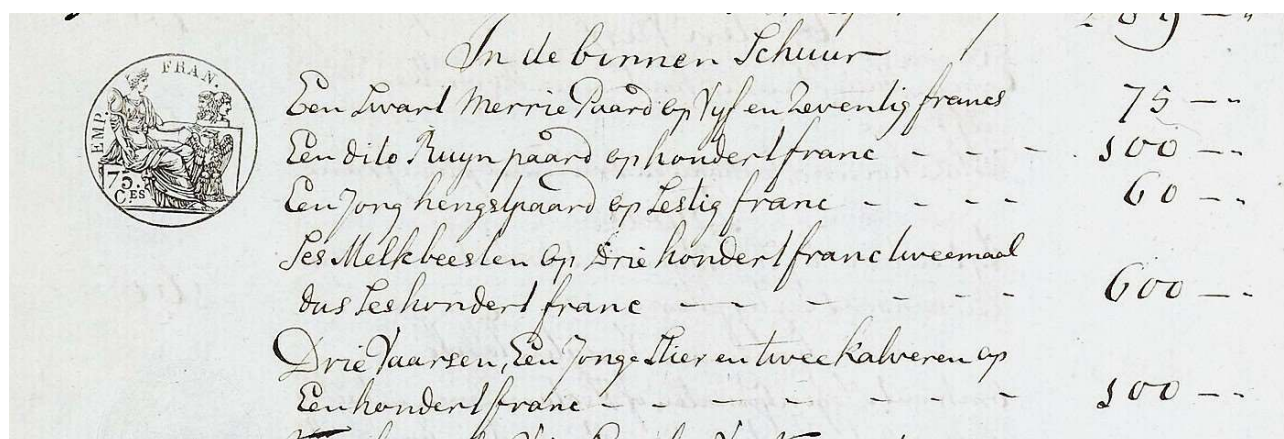 In de binnen Schuur
Een Swart Merrie Paard op Vyf en Zeventig francs 75 - "
Een dito Ruyn paard op hondert franc - - - . 100 - "
Een Jong hengstpaard op Sestig franc - - - - 60 - "
Ses Melkbeesten op Drie hondert franc tweemaal
dus Seshondert franc - - - - - - 600 - "
Drie Vaarsen, Een Jonge Stier en twee kalveren op
Een hondert franc - - - - - - - 100 - "
EMP. FRAN.
75.
CES